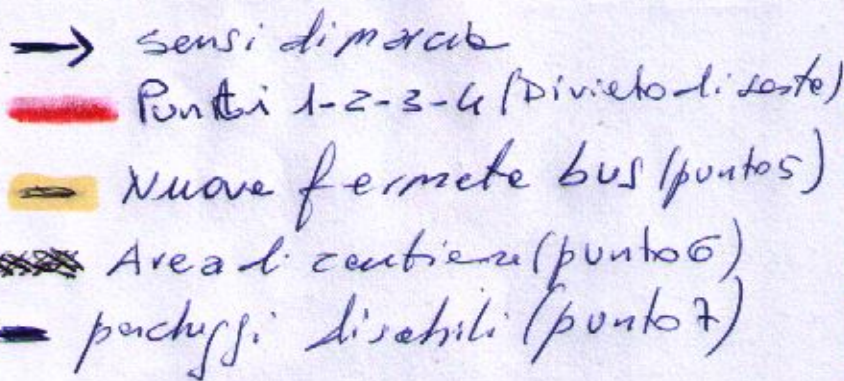 sensi di marcia
Punti 1-2-3-4 (Divieto di sosta)
Nuove fermate bus (punto 5)
Area di cantiere (punto 6)
parcheggi disabili (punto 7)